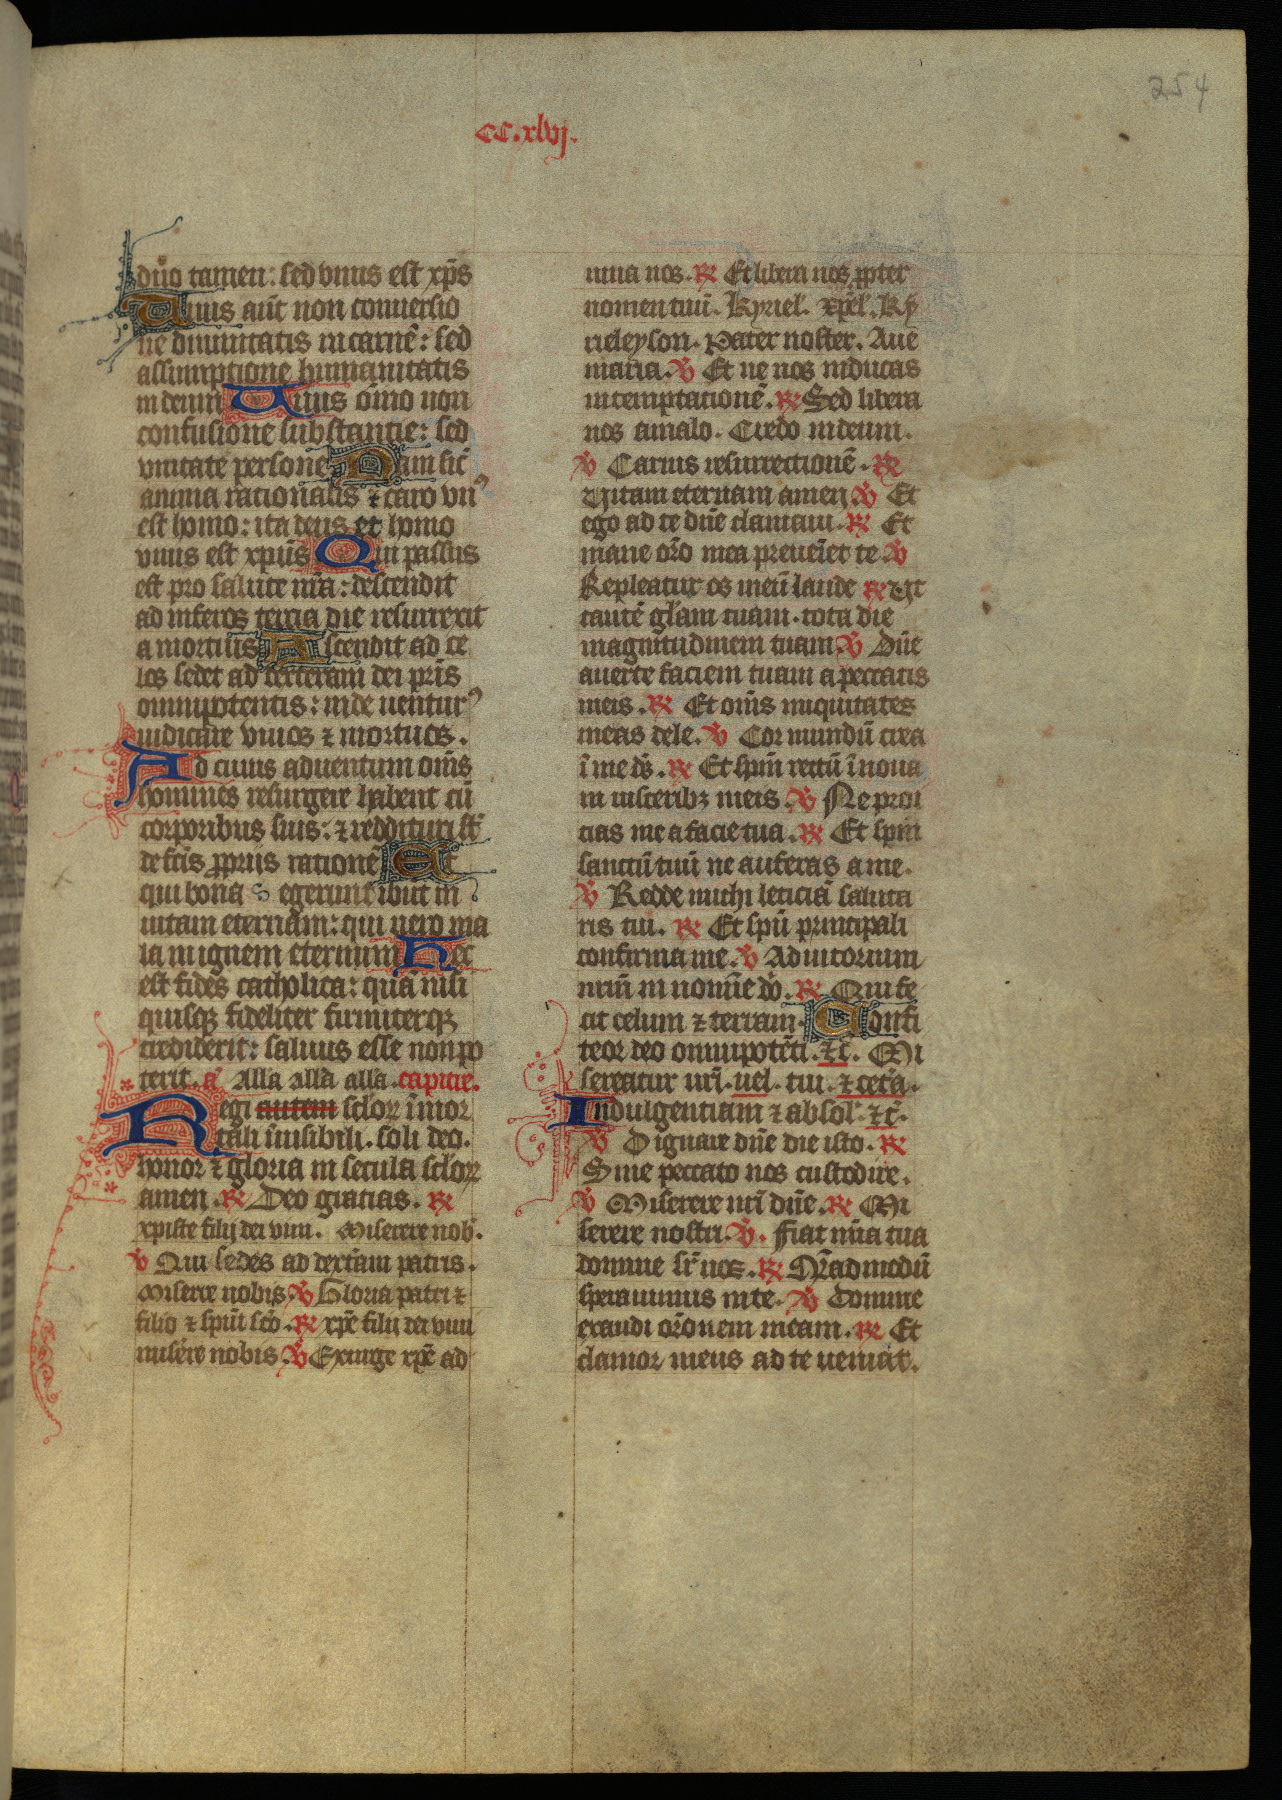 254
CC.xlvj.
duo tamen: sed vnus est xp̄s
Unus aūt non conuersio
ne diuinitatis in carnē: sed
assumptione humanitatis
in deum Unus oīno non
confusione substantie: sed
vnitate persone Nam sic̄
anima rationalis ⁊ caro vnꝰ
est homo: ita deus et homo
vnus est xpūs Qui passus
est pro salute nr̄a: descendit
ad inferos tercia die resurrexit
a mortuis Ascendit ad ce
los sedet ad dexteram dei pr̄is
omnipotentis: inde venturꝰ
iudicare viuos ⁊ mortuos.
Ad cuius aduentum om̄s
homines resurgere habent cū
corporibus suis: ⁊ reddituri st̄
de fc̄is ꝓpriis rationē Et
qui bona egerunt ibūt in
uitam eternam: qui uero ma
la in ignem eternum Hec
est fides catholica: quā nisi
quisqꝫ fideliter firmiterqꝫ
crediderit: saluus esse non po
terit. a᷒ Alla alla alla. capitie.
Regi autem sclọꝝ īmor
tali īuisibili. soli deo.
honor ⁊ gloria in secula scloꝝ
amen. ℟ Deo gratias. ℟
xpiste filij dei viui. Miserere nob̄.
℣ Qui sedes ad dext̄am patris.
Miserere nobis ℣ Gloria patri ⁊
filio ⁊ spūi sc̄o. ℟ xp̄e filij dei viui
miserere nobis ℣ Exurge xp̄e ad
iuua nos. ℟ Et libera nos ꝓpter
nomen tuū. Kyriel. xp̄el. Ky
rieleyson. Pater noster. Aue
maria. ℣ Et ne nos inducas
in temptationē. ℟ Sed libera
nos amalo. Credo in deum.
℣ Carnis resurrectionē. ℟
Uitam eternam amen ℣ Et
ego ad te dn̄e clamaui. ℟ Et
mane or̄o mea preueīet te ℣
Repleatur os meū laude ℟ Ut
cantē gl̄am tuam. tota die
magnitudinem tuam ℣ Dn̄e
auerte faciem tuam a peccatis
meis. ℟ Et om̄s iniquitates
meas dele. ℣ Cor mundū crea
ī me ds̄. ℟ Et spm̄ rectū īnoua
in uisceribꝫ meis. ℣ Ne proi
cias me a facie tua. ℟ Et spm̄
sanctū tuū ne auferas a me.
℣ Redde michi leticiā saluta
ris tui. ℟ Et spū principali
confirma me. ℣ Adiutorium
nr̄m in nomīe dō. ℟ Qui fe
cit celum ⁊ terram. Confi
teor deo omnipotēti. ⁊c̄. Mi
sereatur ur̄i. uel. tui. ⁊ cet̄a.
Indulgentiam ⁊ absol̄ ⁊c̄.
℣ Dignare dn̄e die isto. ℟
Sine peccato nos custodire.
℣ Miserere nr̄i dn̄e. ℟ Mi
serere nostri. ℣. Fiat mīa tua
domine sr̄ nos. ℟ Quēadmodū
sperauimus in te. ℣ Domine
exaudi or̄onem meam. ℟ Et
clamor meus ad te ueniat.